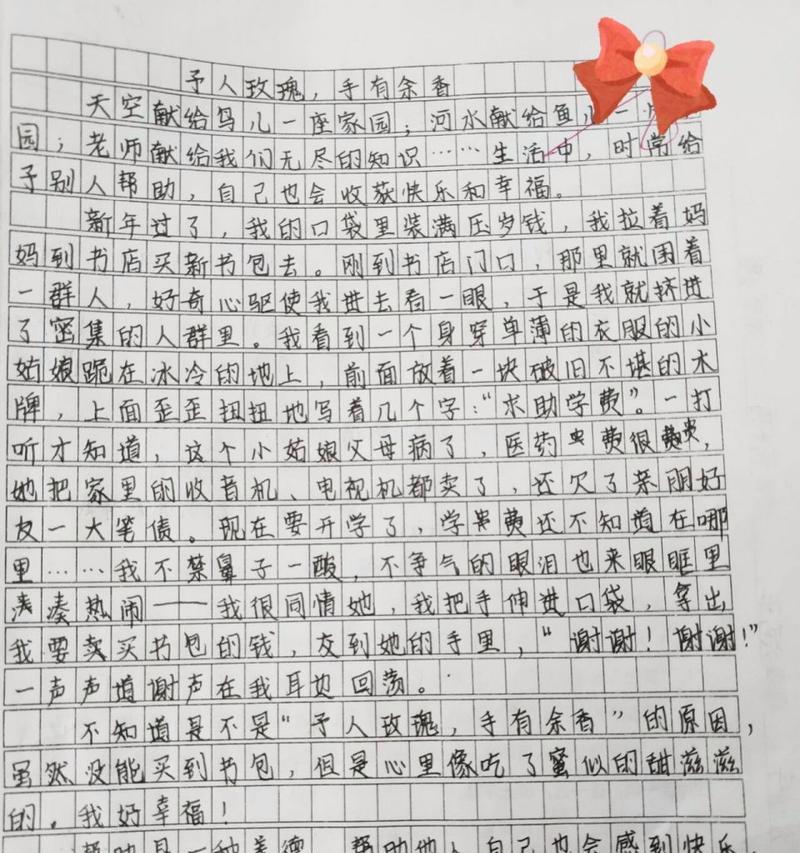 予人玫瑰，手有余香
天空献给鸟儿一座家园；河水献给鱼儿一
园；老师献给我们无尽的知识……生活中，时常给
予别人帮助，自己也会收获快乐和幸福。
新年过了，我的口袋里装满压岁钱，我拉着妈
妈到书店买新书包去。刚到书店门口，那里就围着
一群人，好奇心驱使我进去看一眼，于是我就挤进
了密集的人群里。我看到一个身穿单薄的衣服的小
姑娘跪在冰冷的地上，前面放着一块破旧不堪的木
牌，上面歪歪扭扭地写着几个字：“求助学费”。一打
听才知道，这个小姑娘父母病了，医药费很贵，
她把家里的收音机、电视机都卖了，还欠了亲朋好
友一大笔债。现在要开学了，学费还不知道在哪
里……我不禁鼻子一酸，不争气的眼泪也来眼眶里
凑凑热闹——我很同情她，我把手伸进口袋，拿出
我要卖买书包的钱，交到她的手里，“谢谢！谢谢！”
一声声道谢声在我耳边回荡。
不知道是不是“予人玫瑰，手有余香”的原因，
虽然没能买到书包，但是心里像吃了蜜似的甜滋滋
的。我好幸福！
帮助是一种美德，帮助他人自己也会感到快乐，